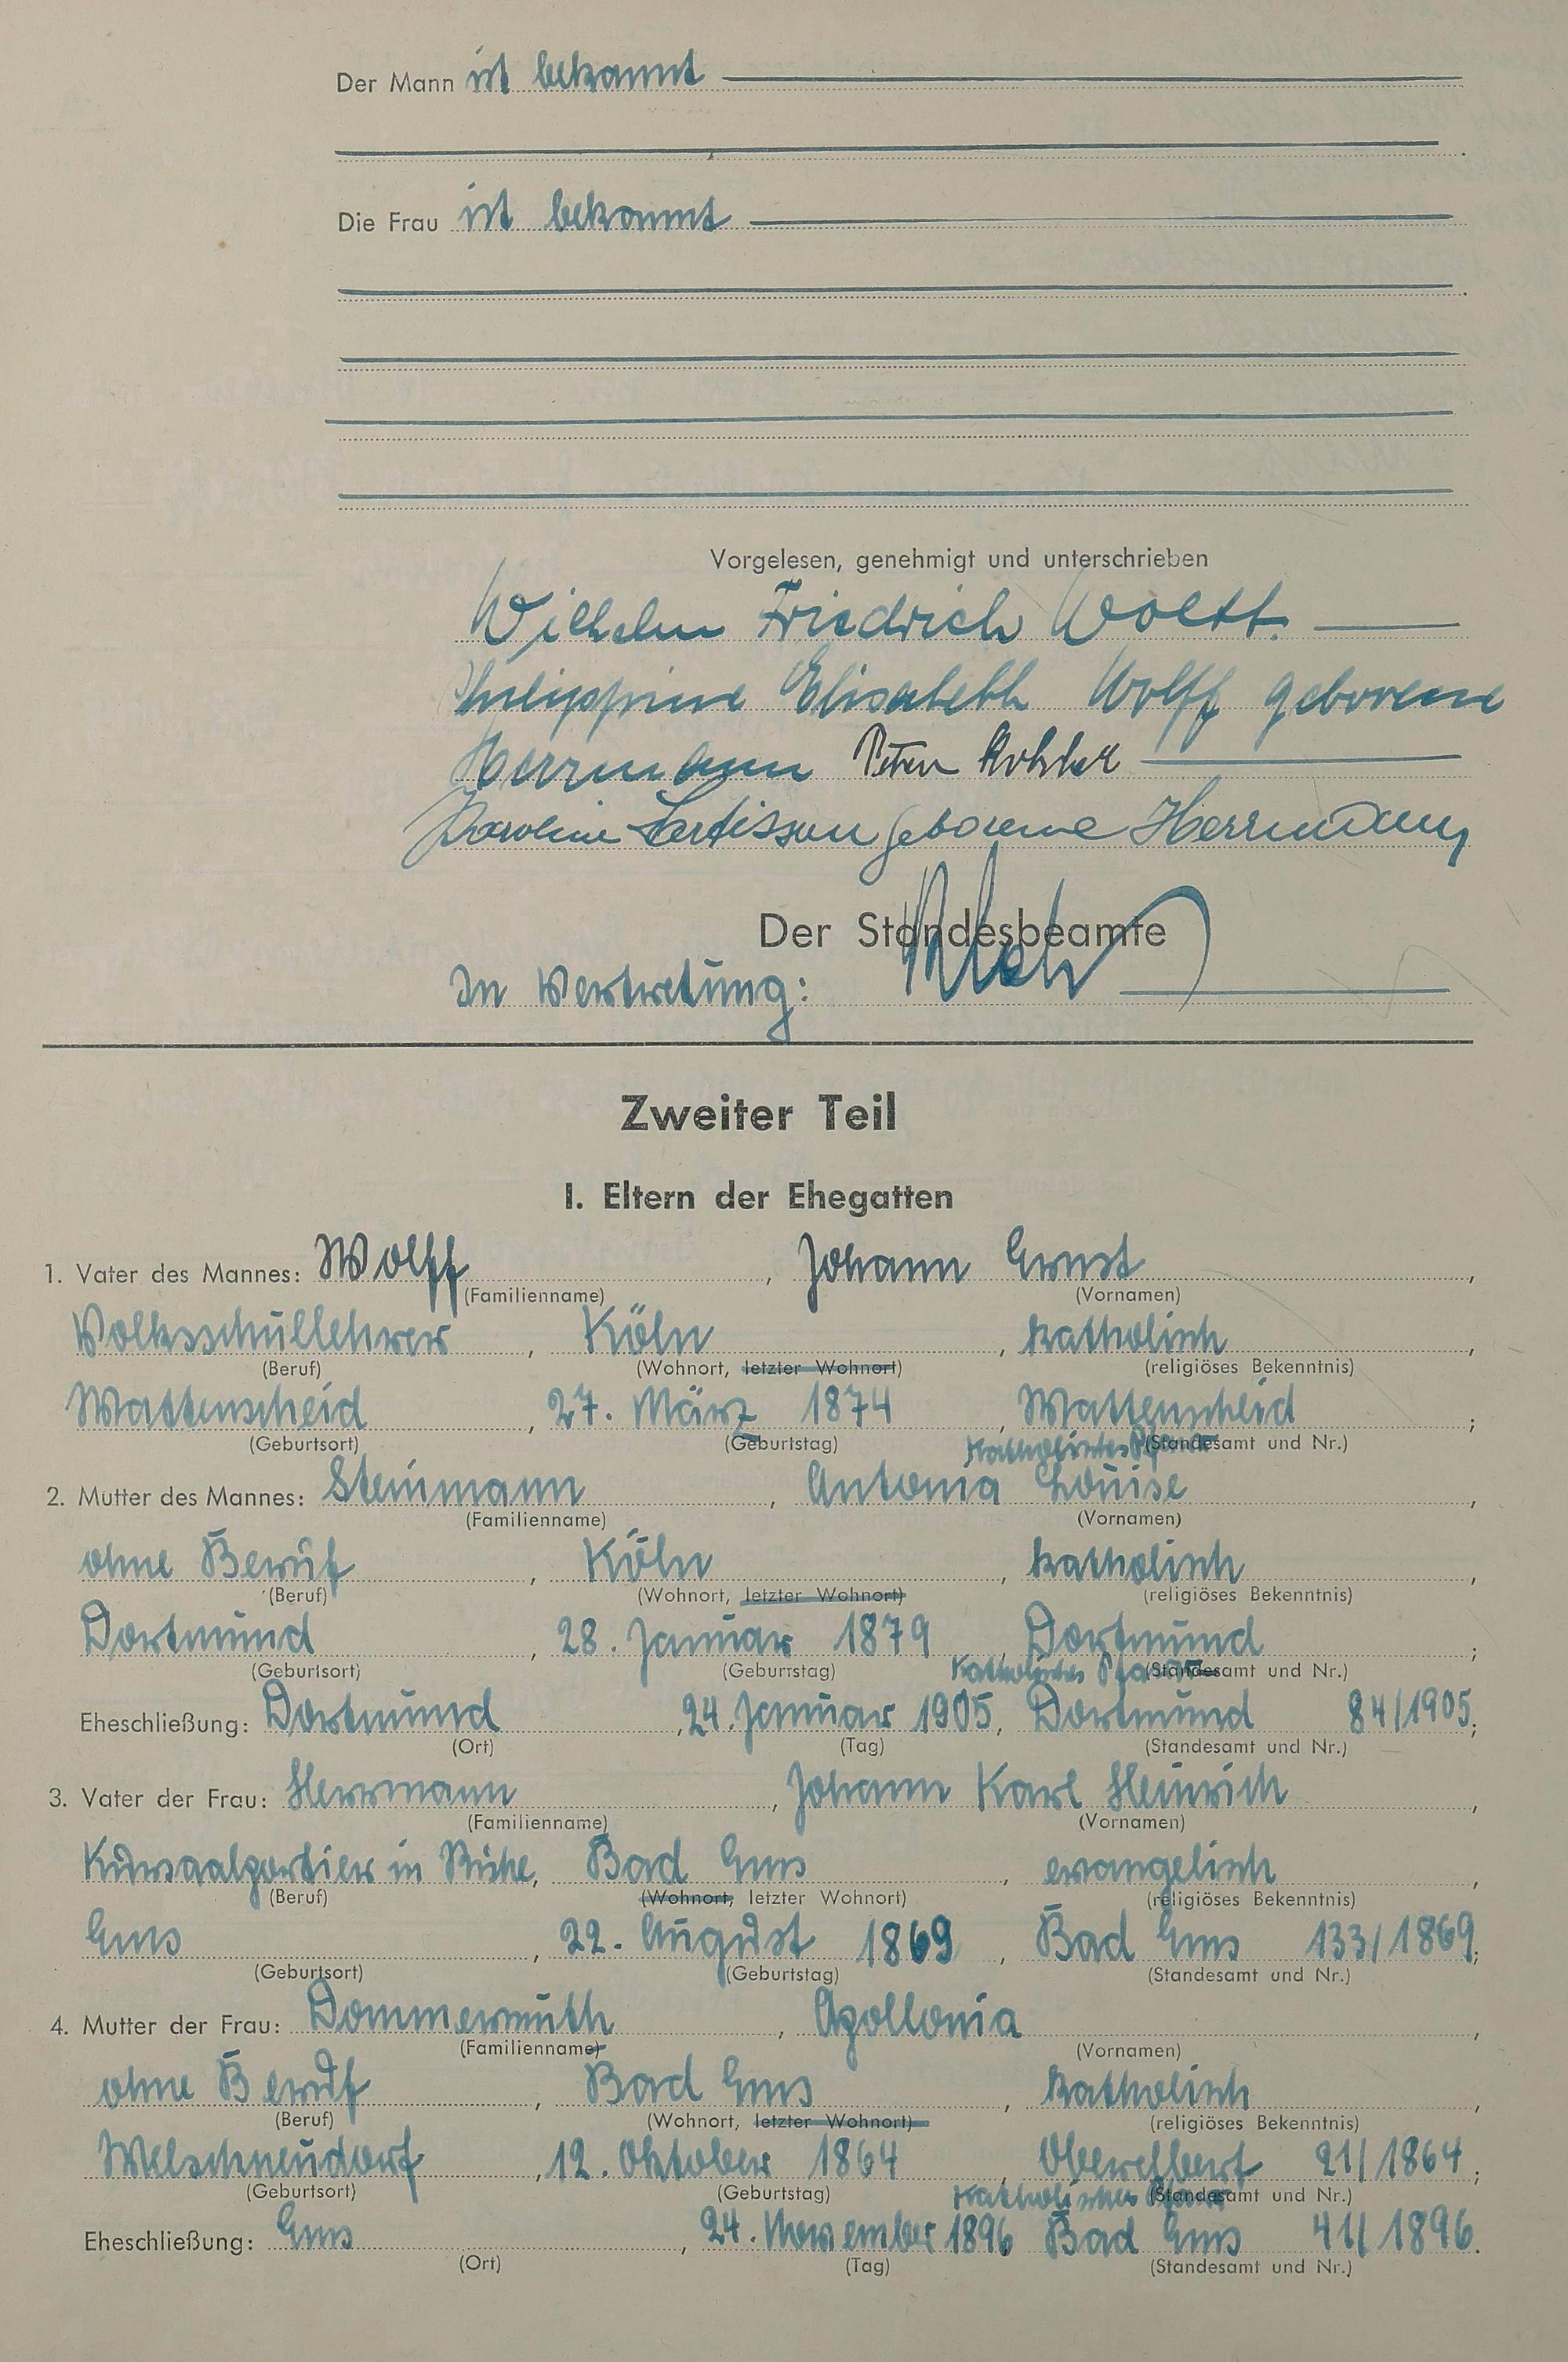 Der Mann ist bekannt
Die Frau ist bekannt
Vorgelesen, genehmigt und unterschrieben
Wilhelm Friedrich Wolff.
Philippine Elisabeth Wolff geborene
Herrmann Peter
Karoline geborene Herrmann
Der Standesbeamte
In Vertretung:
Zweiter Teil
I. Eltern der Ehegatten
1. Vater des Mannes: Wolff, Johann Ernst,
(Familienname) (Vornamen)
Volksschullehrer, Köln, katholisch,
(Beruf) (Wohnort, letzter Wohnort) (religiöses Bekenntnis)
Wattenscheid, 27. März 1874, Wattenscheid;
(Geburtsort) (Geburtstag) Katholisches Pfarramt (Standesamt und Nr.)
2. Mutter des Mannes: Steinmann, Antonia Louise,
(Familienname) (Vornamen)
ohne Beruf, Köln, katholisch,
(Beruf) (Wohnort, letzter Wohnort) (religiöses Bekenntnis)
Dortmund, 28. Januar 1879, Dortmund;
(Geburtsort) (Geburtstag) Katholisches Pfarramt (Standesamt und Nr.)
Eheschließung: Dortmund, 24. Januar 1905, Dortmund 84/1905;
(Ort) (Tag) (Standesamt und Nr.)
3. Vater der Frau: Herrmann, Johann Karl Heinrich,
(Familienname) (Vornamen)
Kursaalportier in Ruhe, Bad Ems, evangelisch,
(Beruf) (Wohnort, letzter Wohnort) (religiöses Bekenntnis)
Ems, 22. August 1869, Bad Ems 133/1869;
(Geburtsort) (Geburtstag) (Standesamt und Nr.)
4. Mutter der Frau: Dommermuth, Apollonia,
(Familienname) (Vornamen)
ohne Beruf, Bad Ems, katholisch,
(Beruf) (Wohnort, letzter Wohnort) (religiöses Bekenntnis)
Welschneudorf, 12. Oktober 1864, Oberelbert 21/1864;
(Geburtsort) (Geburtstag) Katholisches Pfarramt (Standesamt und Nr.)
Eheschließung: Ems, 24. November 1896 Bad Ems 41/1896.
(Ort) (Tag) (Standesamt und Nr.)